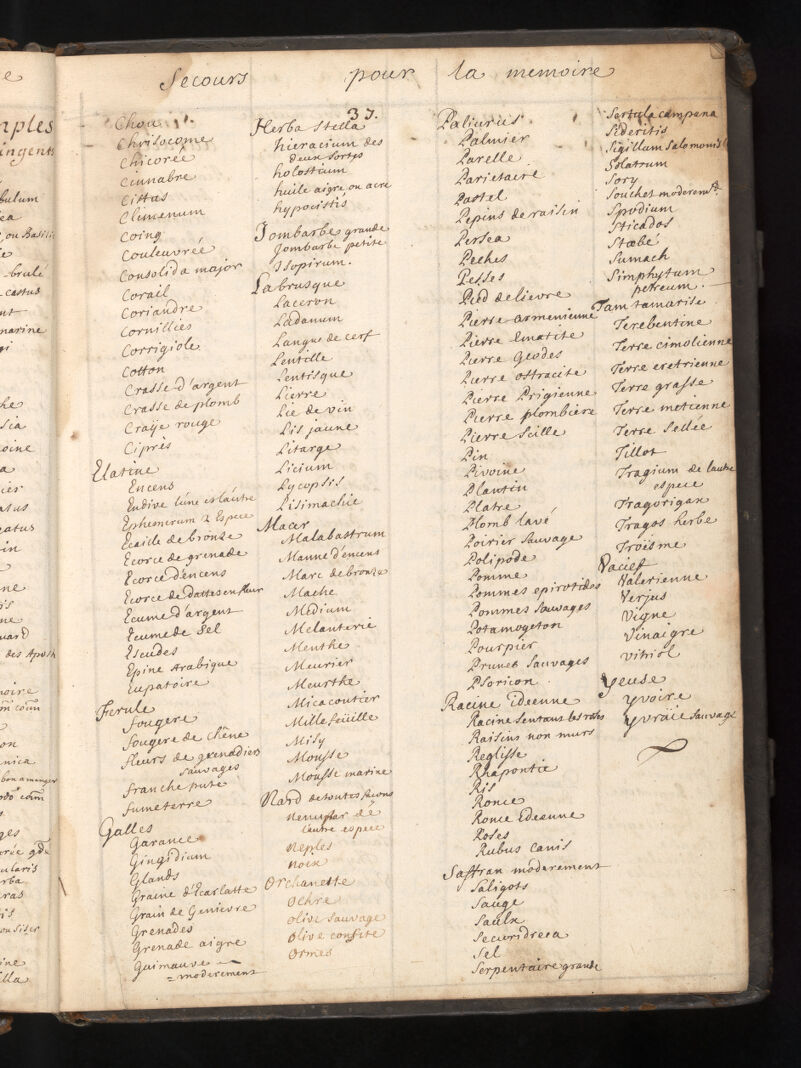 Secours pour la memoire
37.
Chou
Chrisocome
Chicorée
Cinnabre
Cittas
Climenum
Coing
Couleuvrée
Consolida major
Corail
Coriandre
Cornillées
Corrigiole
Cotton
Crasse d'argent
Crasse de plomb
Craÿe rouge
Ciprès
Elatine
Encens
Endive l'une et l'autre
Ephemerum 2 Espece
Ecaille de bronze
Ecorce de grenade
Ecorce d'encens
Ecorce de dattes en fleur
Ecume d'argent
Ecume de Sel
Escudes
Epine Arabique
Eupatoire
Ferule
fougere
fougere de chêne
fleurs de grenadiers
sauvages
franche pute
fumeterre
Galles
Garance
Gingidium
Glands
Graine d'Ecarlatte
Grain de Genievre
Grenades
Grenade aigre
Guimauve
= moderement
Herba Stella
hieracium des
deux sortes
holostium
huile aigre ou acre
hypocistis
Jombarbe grande
Jombarbe petite
Isopirum.
Labrusque
Laceron
Ladanum
Langue de cerf
Lentille
Lentisque
Lierre
Lie de vin
Lis jaune
Litarge
Licium
Lycopsis
Lisimachie
Macer
Malabastrum
Manne d'encens
Marc de bronze
Mache
Medium
Melanterie
Menthe
Meurier
Meurthe
Micacoutier
Millefeüille
Misy
Mousse
Mousse marine
Nard de toutes facons
nenuphar de
l'autre espece
neples
noix
Orchanette
Ochre
Olive sauvage
Olive confite
Ormes
Paliurus
Palmier
Parelle
Parietaire
Pastel
Pepins de raisin
Persea
Peches
Pesses
Pied de lievre
Pierre armenienne
Pierre Ematite
Pierre Geodes
Pierre ostracite
Pierre Prigienne
Pierre plombiere
Pierre Scille
Pin
Pivoine
Plantin
Platre
Plomb lavé
Poirier Sauvage
Polipode
Pomme
Pommes epirotides
Pommes Sauvages
Potamogeton
Pourpier
Prunes Sauvages
Psoricon
Racine Ideenne
Racine sentant les roses
Raisins non murs
Reglisse
Rhapontic
Ris
Ronce
Ronce Ideenne
Roses
Rubus Canis
Saffran moderement
Saligots
Sauge
Saulx
Securidreca
Sel
Serpentaire grande
Sertula campana
Sideritis
Sigillum Salomonis
Solatrum
Sory
Souchet moderemt.
Spodium
Sticados
Stœbé
Sumach
Simphytum
petreum.
Tam tamarise
Terebentine
Terre cimolienne
Terre eretrienne
Terre grasse
Terre metienne
Terre Sellée
Tillot
Tragium de l'autre
espece
Tragorigan
Tragos herbe
Troësme
Vaciet
Valerienne
Verjus
Vigne
Vinaigre
vitriol
Yeuse
yvoire
yvraie sauvage